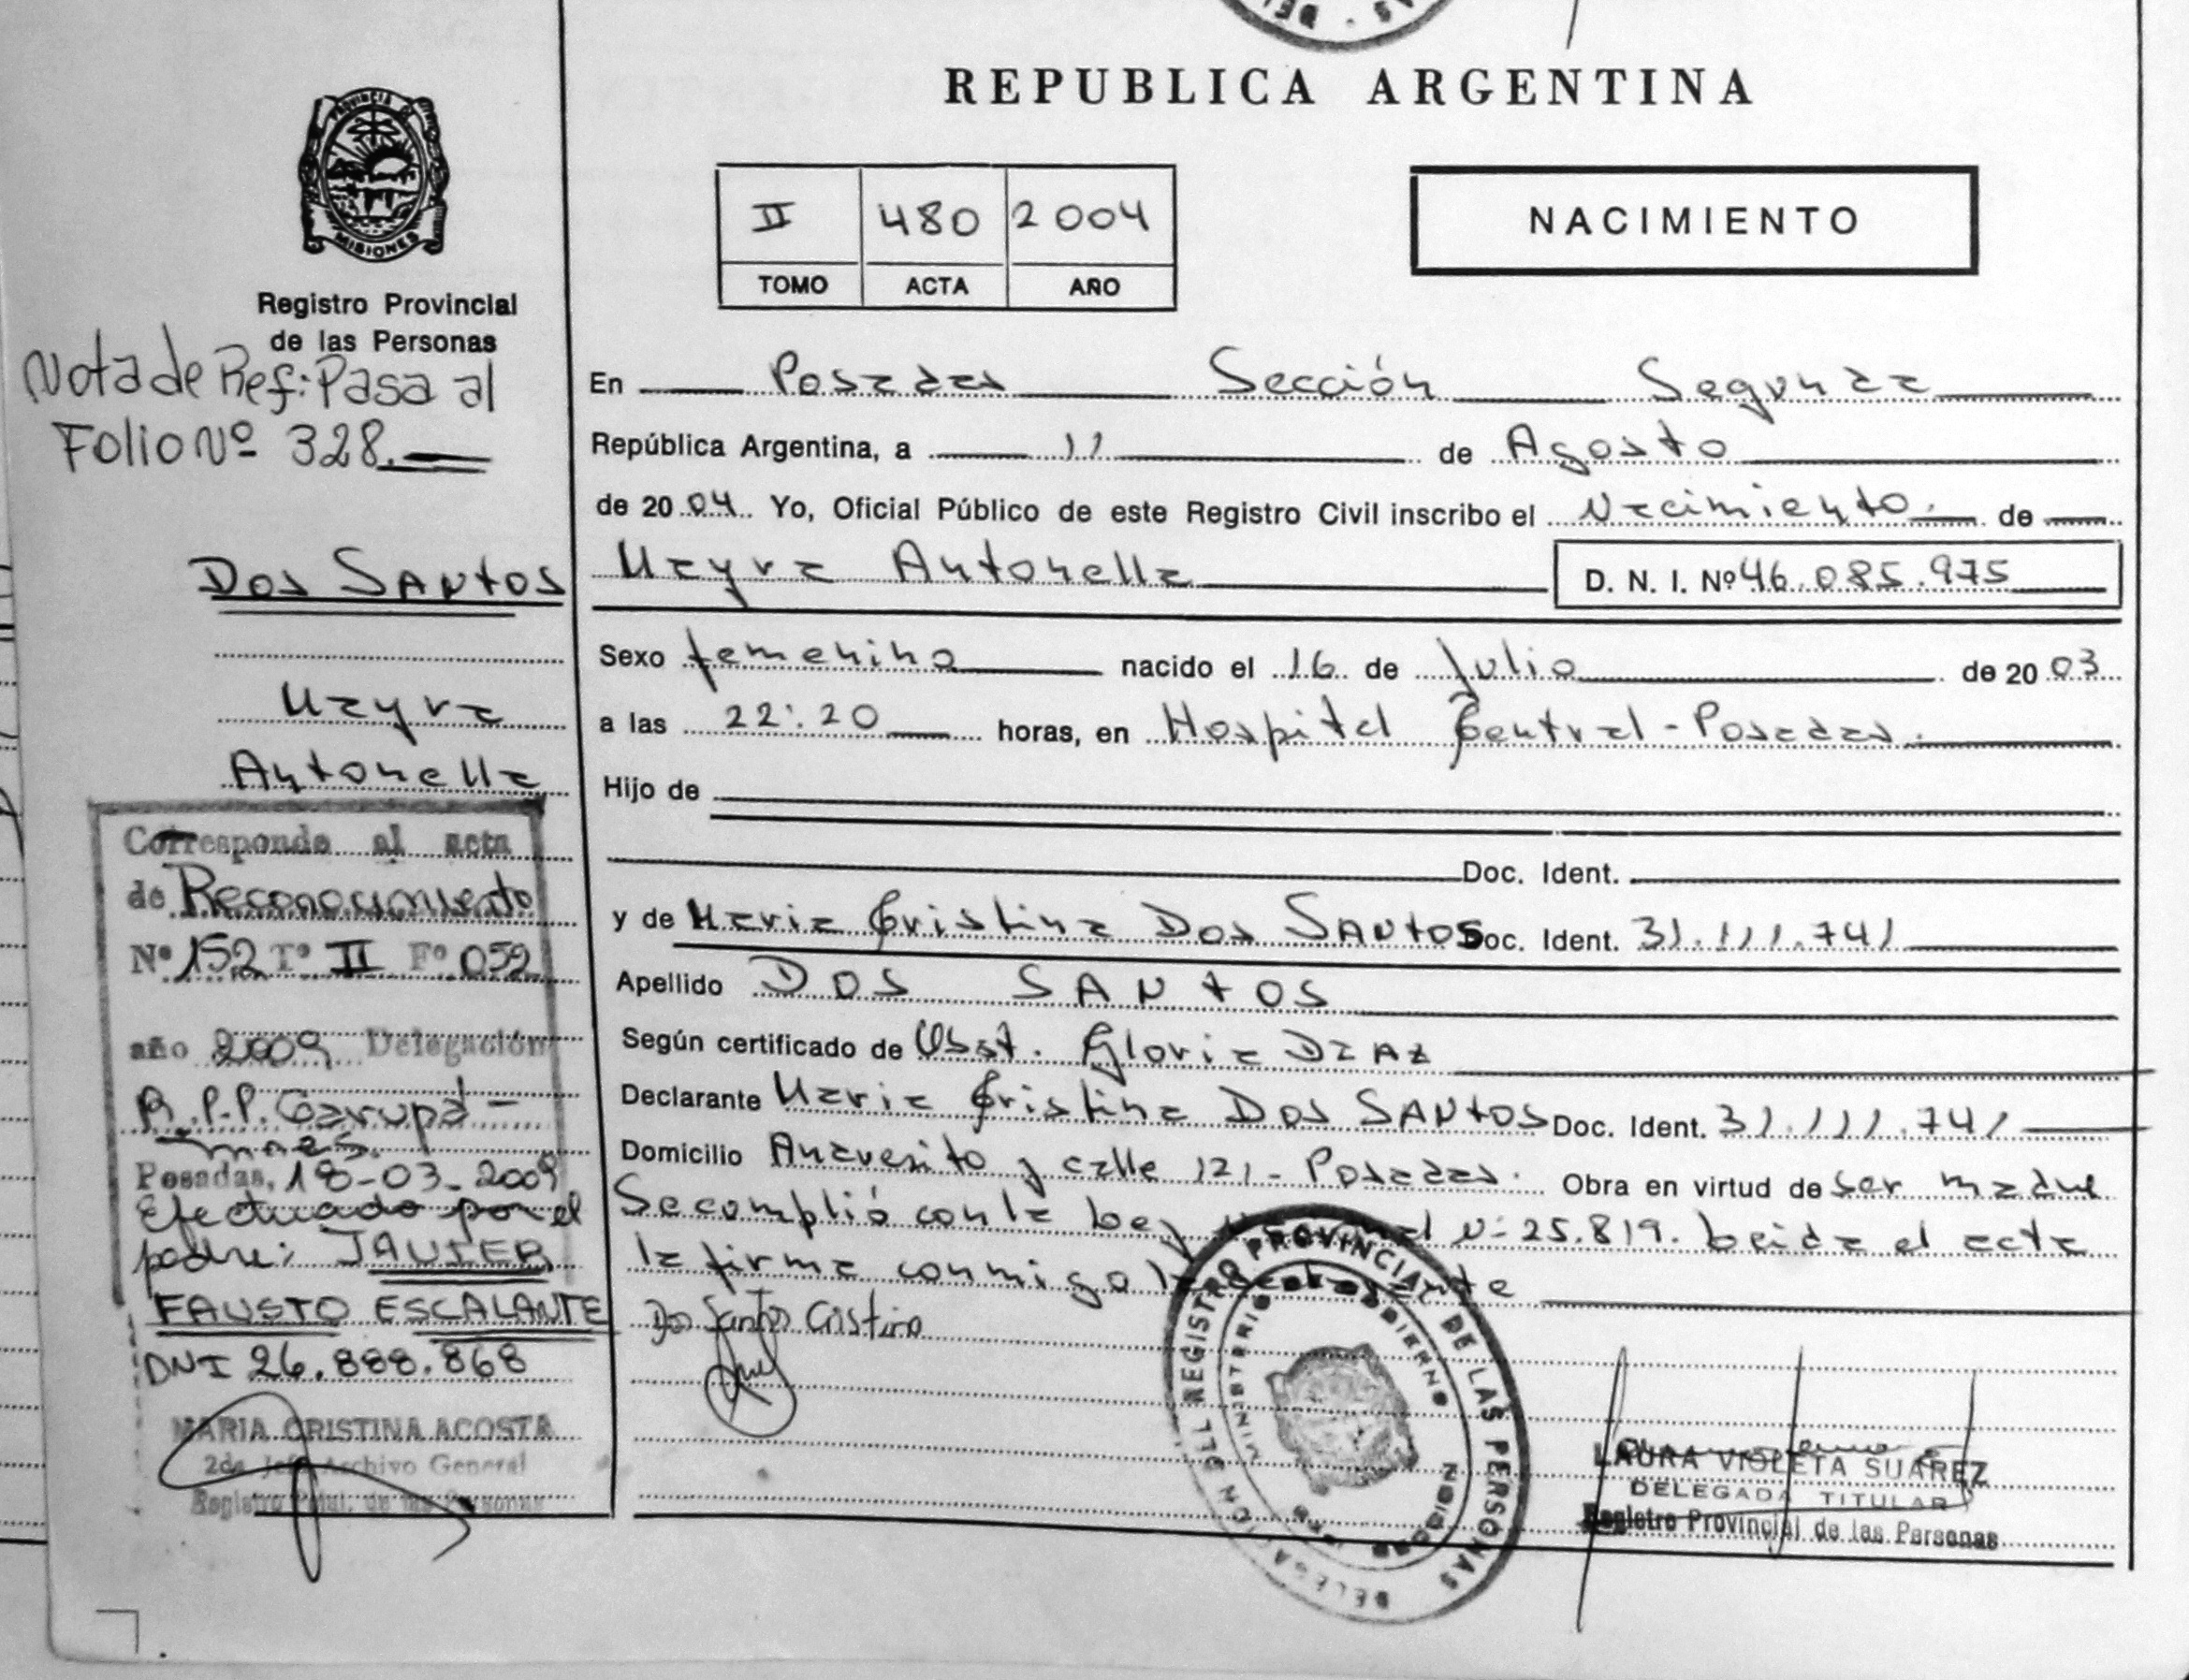 REPUBLICA ARGENTINA
PROVINCIA DE
MISIONES
Registro Provincial
de las Personas
Nota de Ref: Pasa al
Folio Nº 328.
II 480 2004
TOMO ACTA AÑO
NACIMIENTO
En Posadas Sección Segunda
República Argentina, a 11 de Agosto
de 2004 Yo, Oficial Público de este Registro Civil inscribo el Nacimiento. de
Mayra Antonella D. N. I. Nº 46.085.975
Sexo femenino nacido el 16 de Julio de 2003
a las 22:20 horas, en Hospital Central - Posadas.
Hijo de
Doc. Ident.
y de Maria Cristina Dos SANtOS Doc. Ident. 31.111.741
Apellido DOS SANtOS
Según certificado de Obst. Gloria DIAZ
Declarante Maria Cristina Dos SANtOS Doc. Ident. 31.111.741
Domicilio y calle 121 - Posadas. Obra en virtud de ser madre
Se cumplió con la Ley nacional Nº 25.819. Leida el acta
la firma conmigo la declarante
Dos Santos Cristina
DOS SANtOS
Mayra
Antonella
Corresponde al acta
de Reconocimiento
Nº 152 Tº II Fº 059
año 2009 Delegación
R.P.P. Garupá -
Mnes.
Posadas, 18-03-2009
Efectuado por el
padre: JAVIER
FAUSTO ESCALANTE
DNI 26.888.868
MARIA CRISTINA ACOSTA
2da Jefe Archivo General
Registro Pcial. de las Personas
DELEGACION DEL REGISTRO PROVINCIAL DE LAS PERSONAS
MINISTERIO DE GOBIERNO
LAURA VIOLETA SUAREZ
DELEGADA TITULAR
Registro Provincial de las Personas